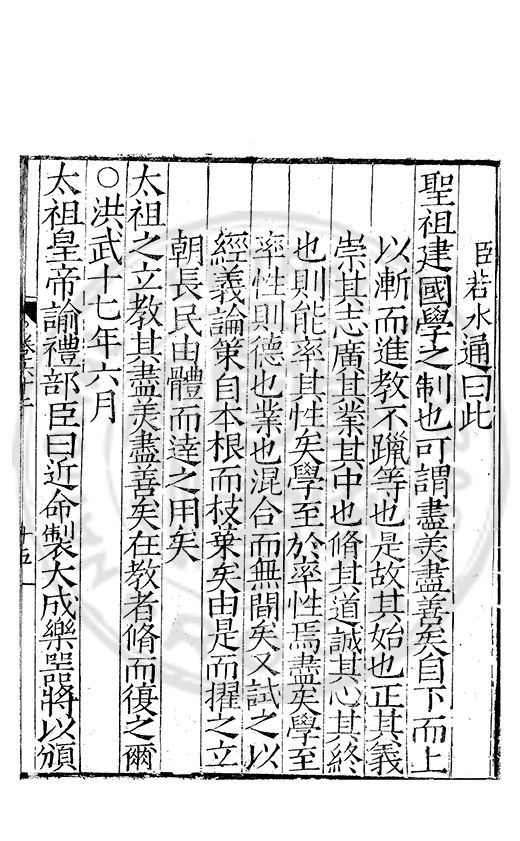 臣若水通曰此
聖祖建國學之制也可謂盡美盡善矣自下而上
以漸而進教不躐等也是故其始也正其義
崇其志廣其業其中也脩其道誠其心其終
也則能率其性矣學至於率性焉盡矣學至
率性則德也業也混合而無間矣又試之以
經義論策自本根而枝葉矣由是而擢之立
朝長民由體而達之用矣
太祖之立教其盡美盡善矣在教者脩而復之爾
○洪武十七年六月
太祖皇帝諭禮部臣曰近命製大成樂器將以頒